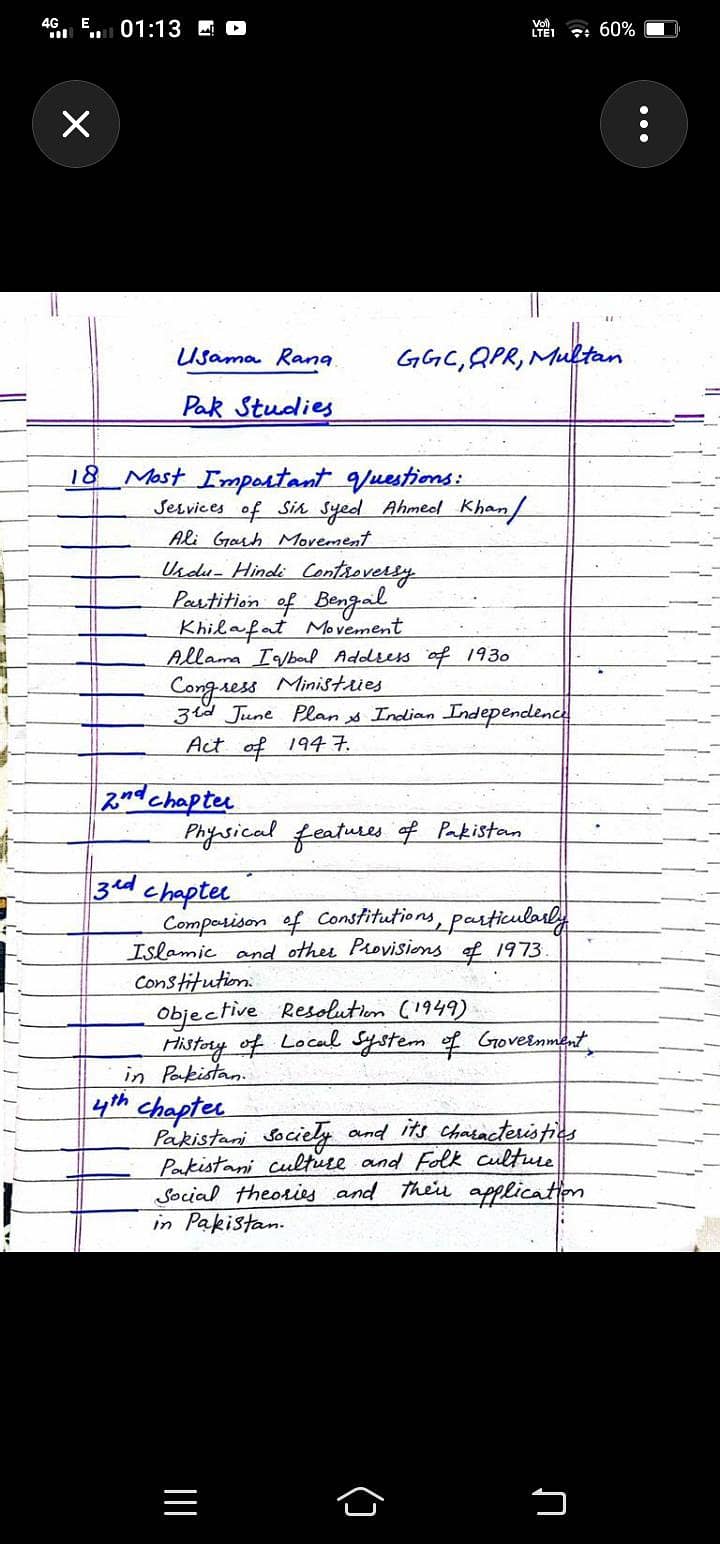 4G E 01:13 Vo)) LTE1 60%
Usama Rana GGC, QPR, Multan
Pak Studies
18 Most Important Questions:
Services of Sir Syed Ahmed Khan/
Ali Garh Movement
Urdu-Hindi Controversy
Partition of Bengal
Khilafat Movement
Allama Iqbal Address of 1930
Congress Ministries
3rd June Plan & Indian Independence
Act of 1947.
2nd chapter
Physical features of Pakistan
3rd chapter
Comparison of Constitutions, particularly
Islamic and other Provisions of 1973
Constitution.
Objective Resolution (1949)
History of Local System of Government
in Pakistan.
4th chapter
Pakistani Society and its characteristics
Pakistani culture and Folk culture
Social theories and their application
in Pakistan.